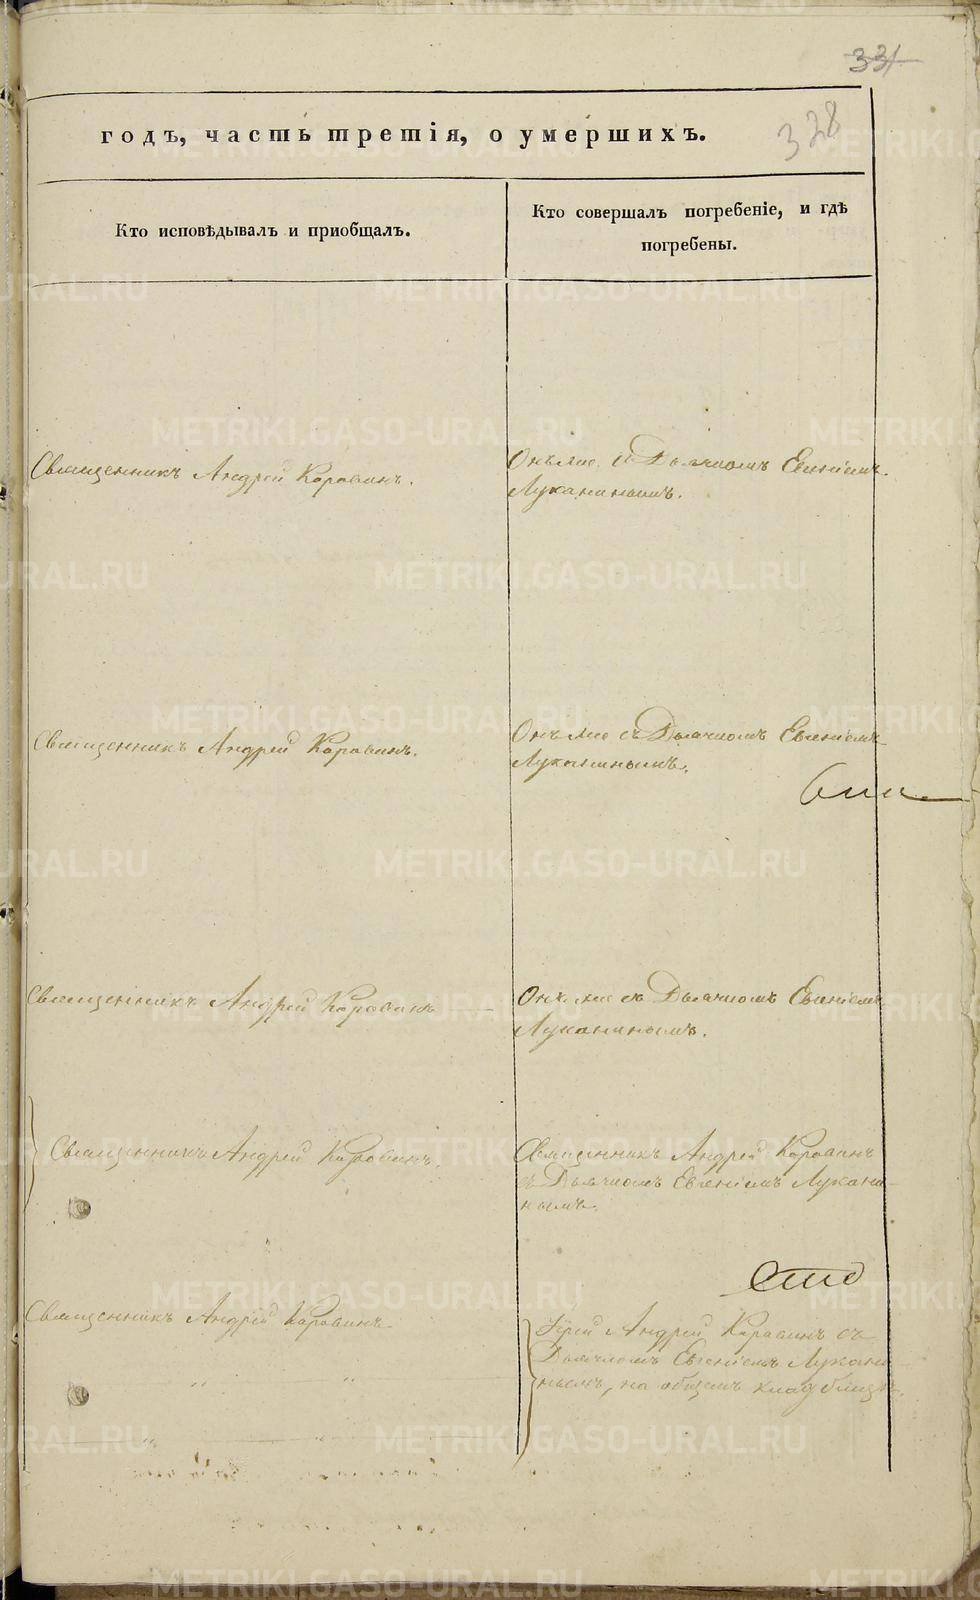 331
328
годъ, часть третія, о умершихъ.
Кто исповѣдывалъ и пріобщалъ.
Кто совершалъ погребеніе, и гдѣ
погребены.
Священникъ Андрей Коровинъ.
Онъ же съ Дьячкомъ Евгеніемъ
Луканинымъ.
Священникъ Андрей Коровинъ.
Онъ же съ Дьячкомъ Евгеніемъ
Луканинымъ.
Священникъ Андрей Коровинъ
Онъ же съ Дьячкомъ Евгеніемъ
Луканинымъ.
Священникъ Андрей Коровинъ.
Священникъ Андрей Коровинъ
съ Дьячкомъ Евгеніемъ Лукани-
нымъ.
Священникъ Андрей Коровинъ
Іерей Андрей Коровинъ съ
Дьячкомъ Евгеніемъ Лукани-
нымъ, на общемъ кладбищѣ.
METRIKI.GASO-URAL.RU